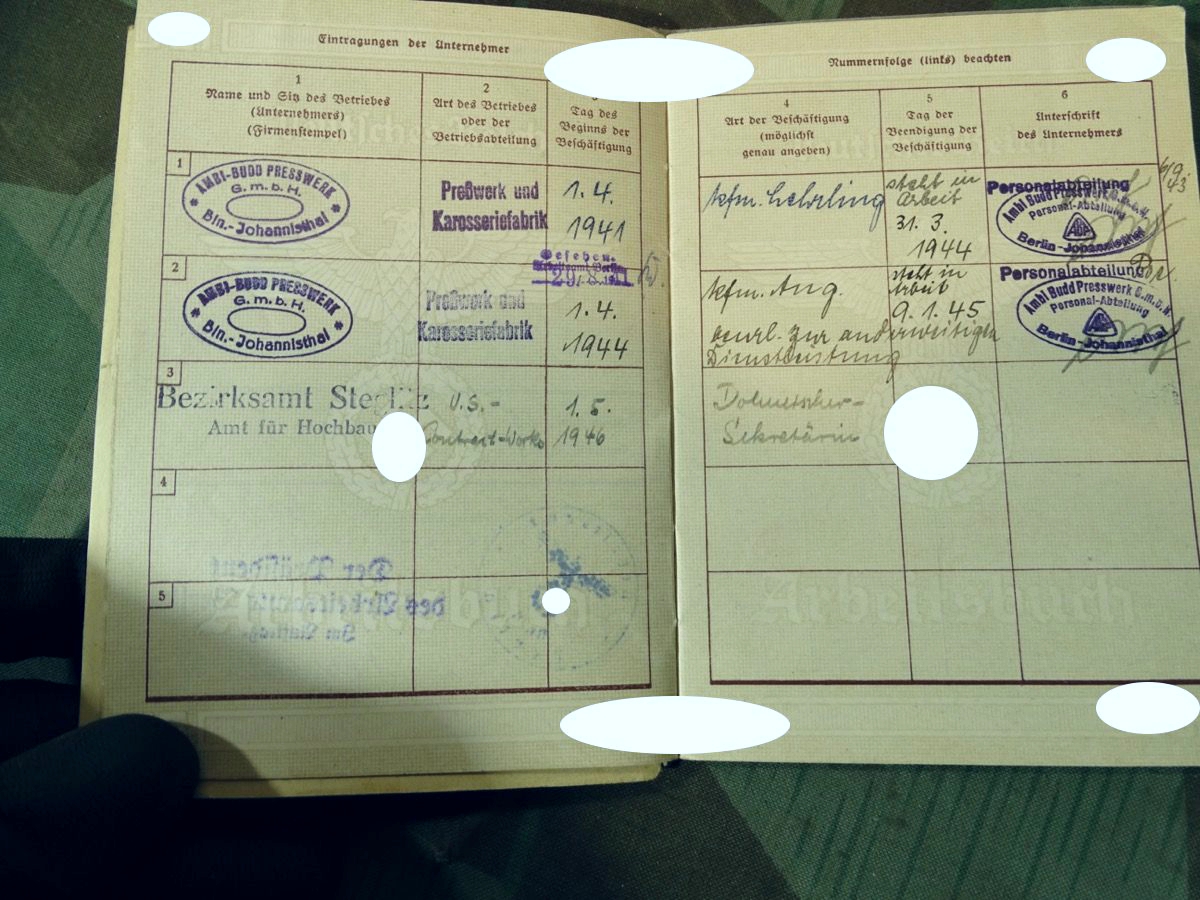 Eintragungen der Unternehmer
1
Name und Sitz des Betriebes
(Unternehmers)
(Firmenstempel)
2
Art des Betriebes
oder der
Betriebsabteilung
Tag des
Beginns der
Beschäftigung
1
AMBI-BUDD PRESSWERK
G.m.b.H.
Bln.-Johannisthal
Preßwerk und
Karosseriefabrik
1.4.
1941
Gesehen.
2
AMBI-BUDD PRESSWERK
G.m.b.H.
Bln.-Johannisthal
Preßwerk und
Karosseriefabrik
1.4.
1944
3
Bezirksamt Steglitz
Amt für Hochbau
U.S.-
Contract-Works
1.5.
1946
4
Der Präsident
des Arbeitsamts
Im Auftrag
5
Nummernfolge (links) beachten
4
Art der Beschäftigung
(möglichst
genau angeben)
5
Tag der
Beendigung der
Beschäftigung
6
Unterschrift
des Unternehmers
kfm. Lehrling
steht in
Arbeit
31.3.
1944
6/9.
43
Personalabteilung
Ambi Budd Presswerk G.m.b.H.
Personal-Abteilung
Berlin-Johannisthal
kfm. Ang.
steht in
Arbeit
9.1.45
beurl. zur anderweitigen
Dienstleistung
Personalabteilung
Ambi Budd Presswerk G.m.b.H.
Personal-Abteilung
Berlin-Johannisthal
Dolmetscher-
Sekretärin